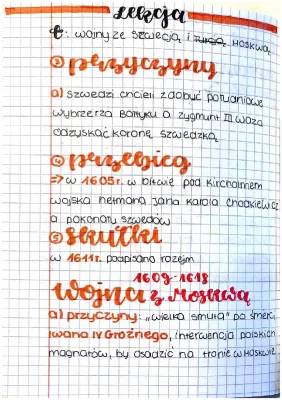 Lekcja
t: wojny ze szwecją i turcją. Moskwą
① przyczyny
a) szwedzi chcieli zdobyć południowe
wybrzerza Bałtyku a zygmunt III waza
odzyskać koronę szwedzką
② przebieg
=> w 1605r. w bitwie pod Kircholmem
wojska hetmana Jana Karola chodkiewicza
a pokonały szwedów
③ skutki
w 1611r. podpisano rozejm
1609-1618
wojna z Moskwą
a) przyczyny: „wielka smuta" po śmierci
Iwana IV Groźnego, interwencja polskich
magnatów, by osadzić na tronie w Moskwie